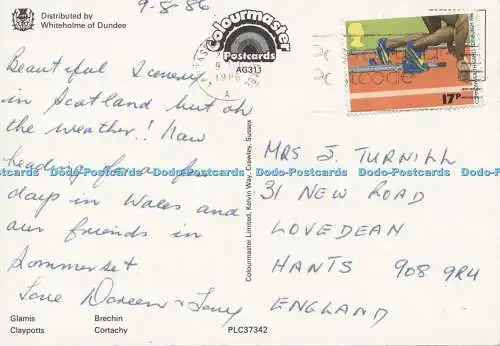 9-8-86
Distributed by
Whiteholme of Dundee
Colourmaster
Postcards
AG313
1986
A
17P
Beautiful Scenery
in Scotland but oh
the weather!! Now
heading of for a few
days in Wales and
our friends in
Sommerset
Love Doreen & Tony
MRS J. TURNILL
31 NEW ROAD
LOVEDEAN
HANTS 908 9RU
ENGLAND
Colourmaster Limited, Kelvin Way, Crawley, Sussex
Glamis Brechin
Claypotts Cortachy
PLC37342
Dodo-Postcards Dodo-Postcards Dodo-Postcards Dodo-Postcards Dodo-Postcards